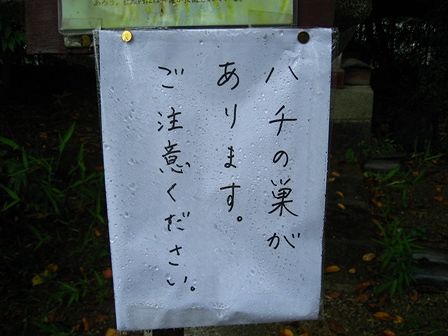 ハチの巣が
あります。
ご注意ください。